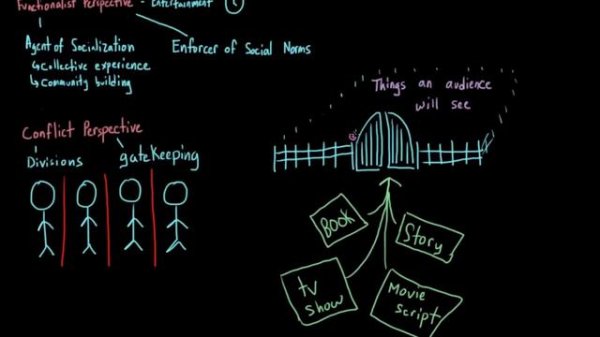 Functionalist Perspective - Entertainment
Agent of Socialization
Enforcer of Social Norms
↳ Collective experience
↳ Community building
Conflict Perspective
Divisions
gatekeeping
Things an audience
will see
Book
Story
tv
show
Movie
script